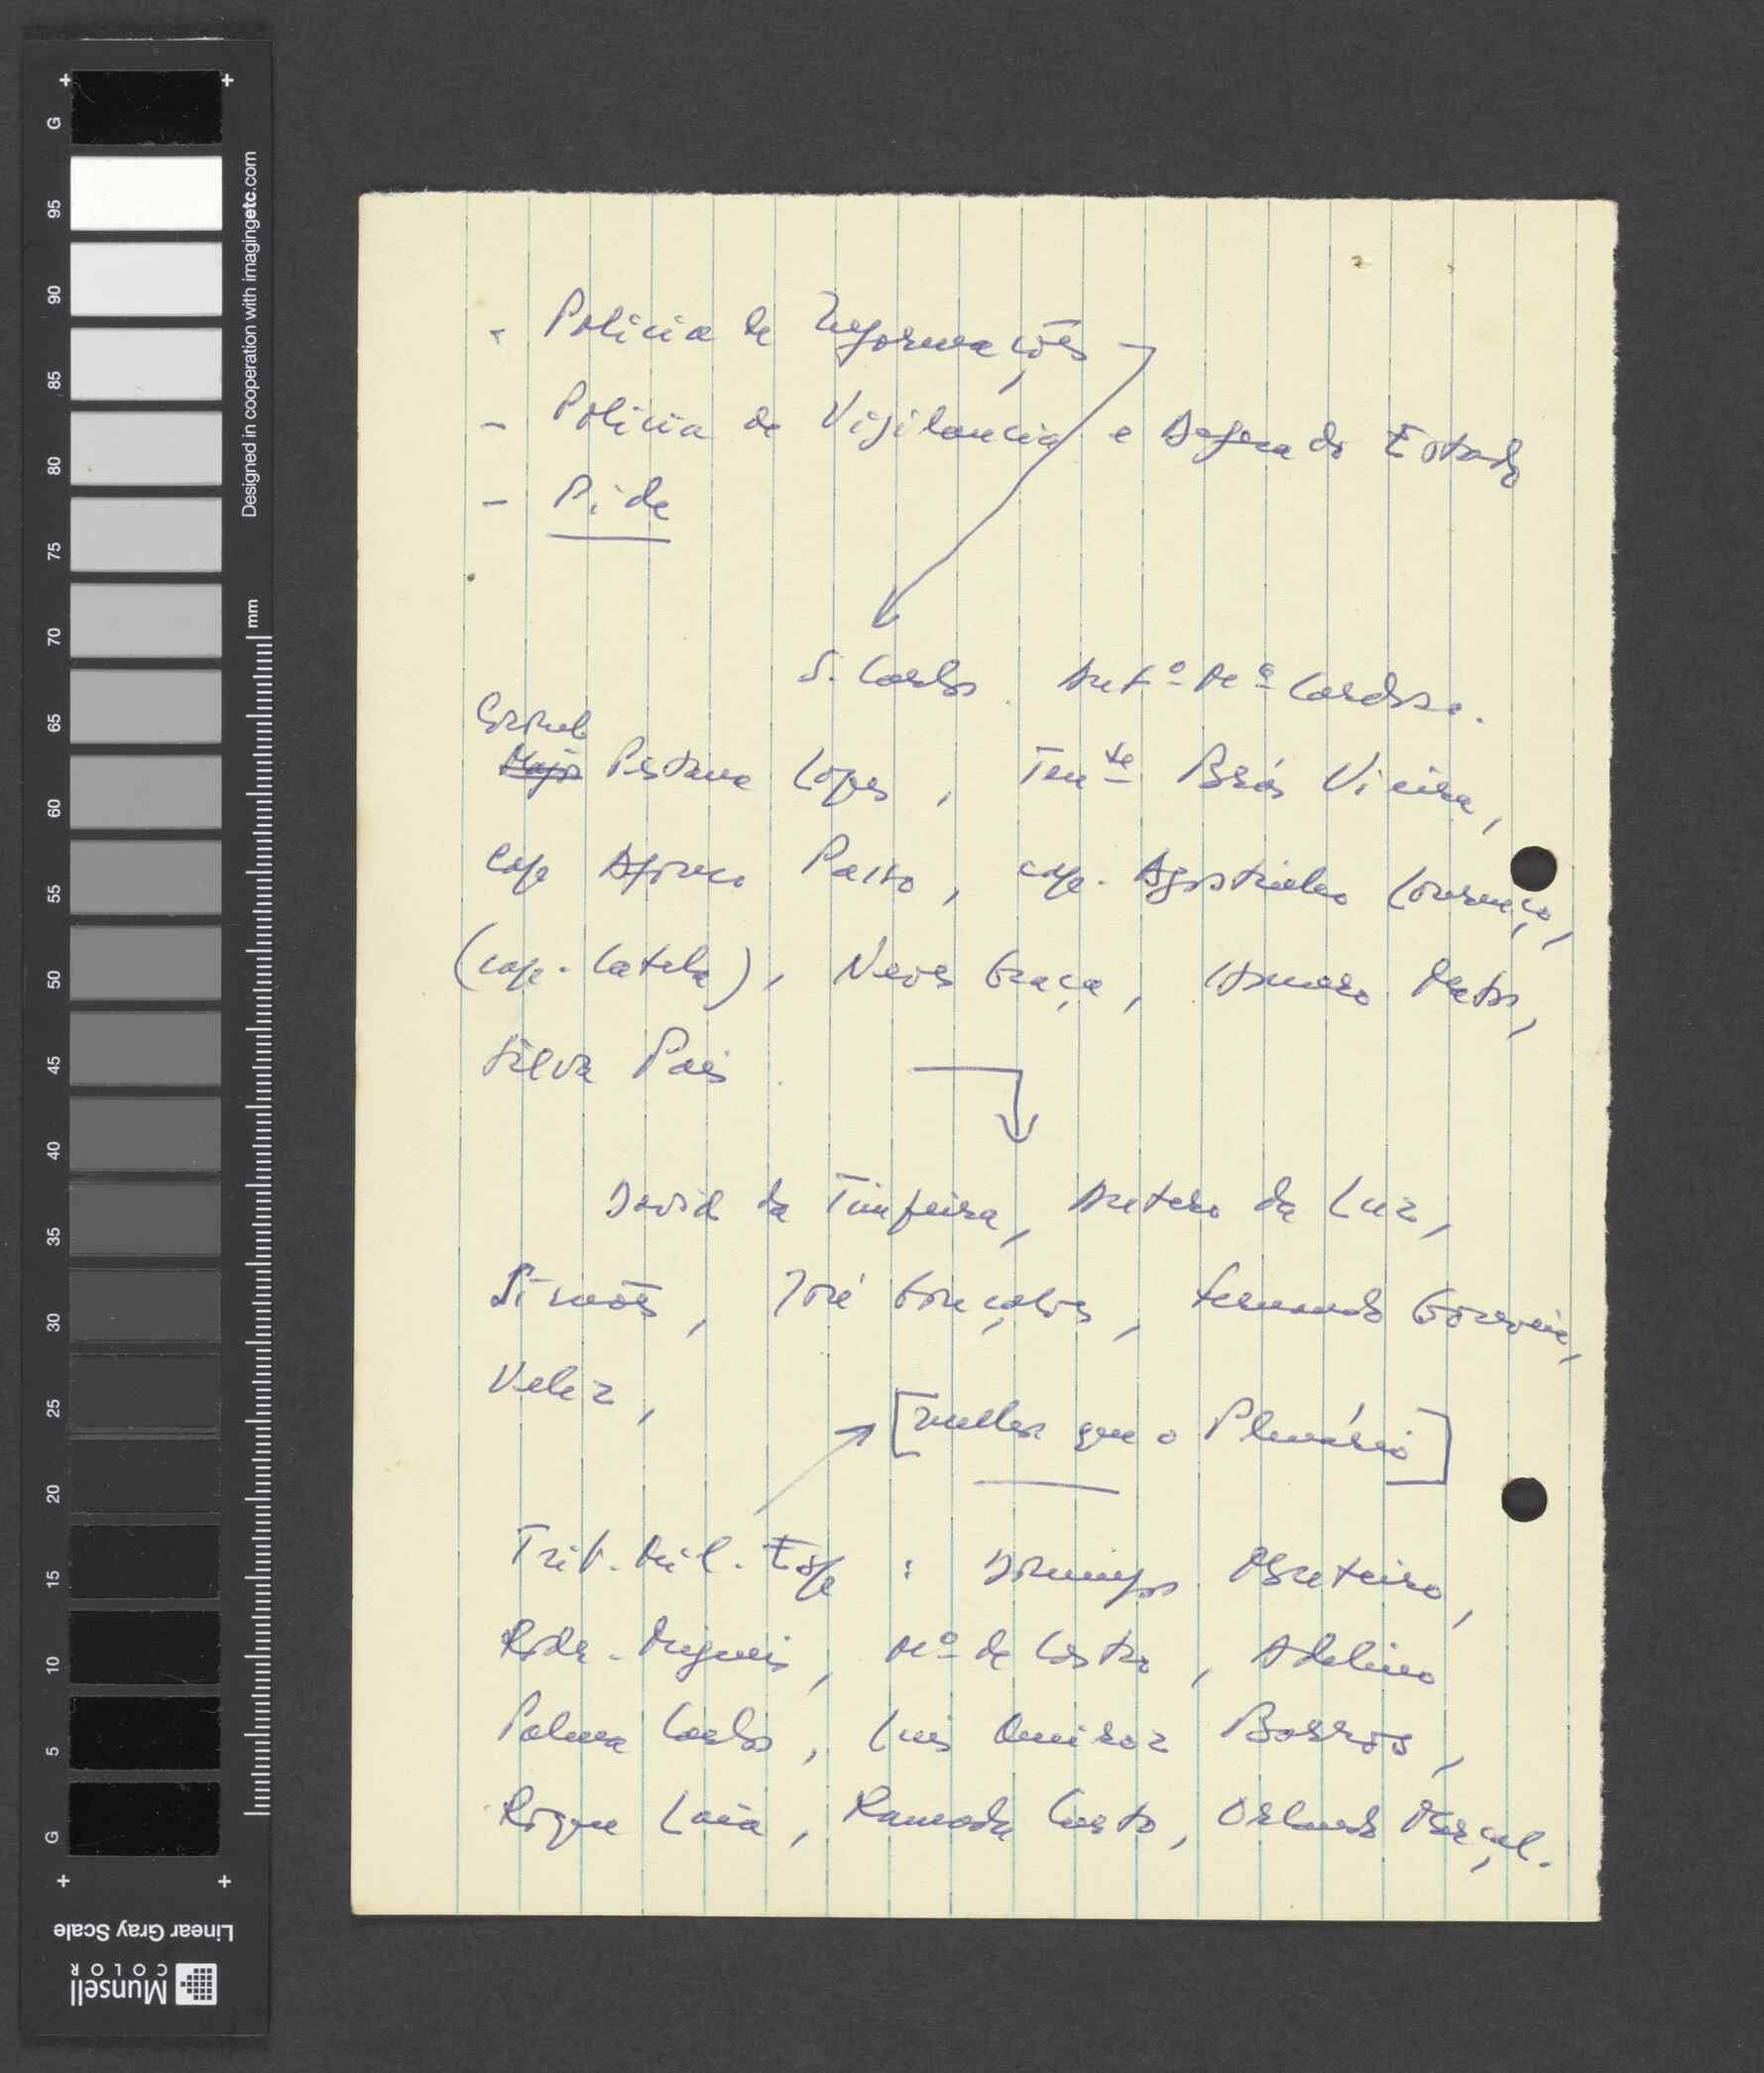 G
95
90
85
80
75
70
65
60
55
50
45
40
35
30
25
20
15
10
5
G
Designed in cooperation with imagingetc.com
mm
Linear Gray Scale
Munsell
COLOR
- Policia de Informações
- Policia de Vigilancia e Defesa do Estado
- Pide
S. Carlos. Antº Mª Cardoso.
Coronel
Major Pestana Lopes, Tente Brás Vieira,
Cap Afonso Passo, cap. Agostinho Lourenço,
(cap. Catela), Neves Graça, Homero Matos,
Silva Pais
David da Fonseca, Antero da Luz,
Simões, José Gonçalves, Fernando Gouveia,
Velez,
[melhor que o Plenário]
Trib. Mil. Esp : Domingos Monteiro,
Rodr. Migueis, Mº de Castro, Adelino
Palma Carlos, Luis Queiroz Barros,
Roque Laia, Ramada Curto, Orlando Marçal.